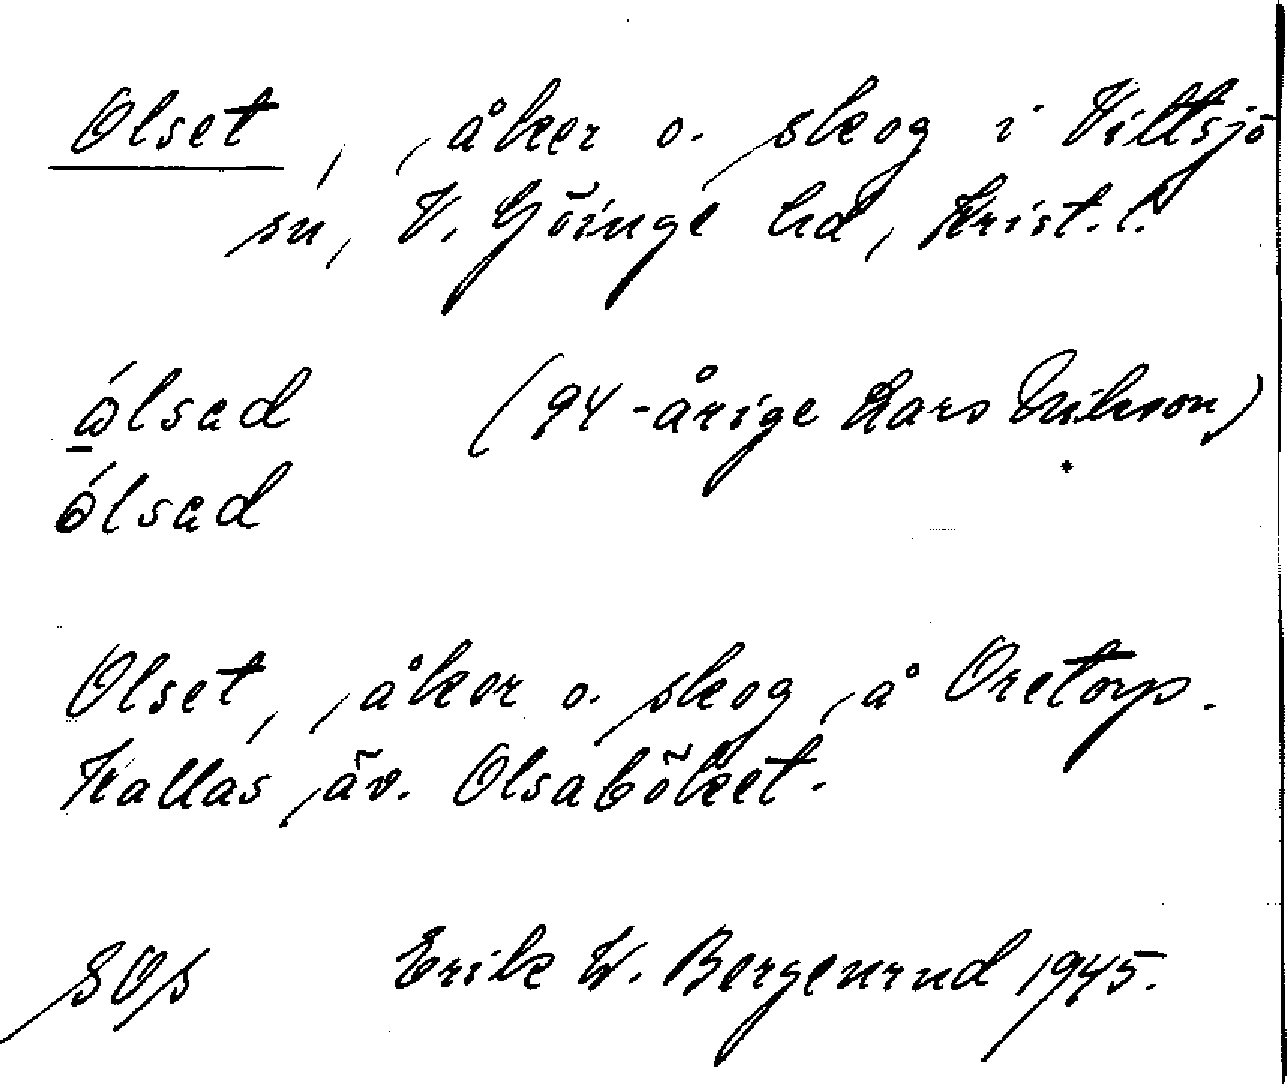 Olset, åker o. skog i Vittsjö
sn, V. Göinge hd, Krist. l.
ólsad (94-årige Lars Nilsson)
ólsad
Olset, åker o. skog å Oretorp.
Kallas äv. Olsaböket.
SOS Erik W. Bergenrud 1945.